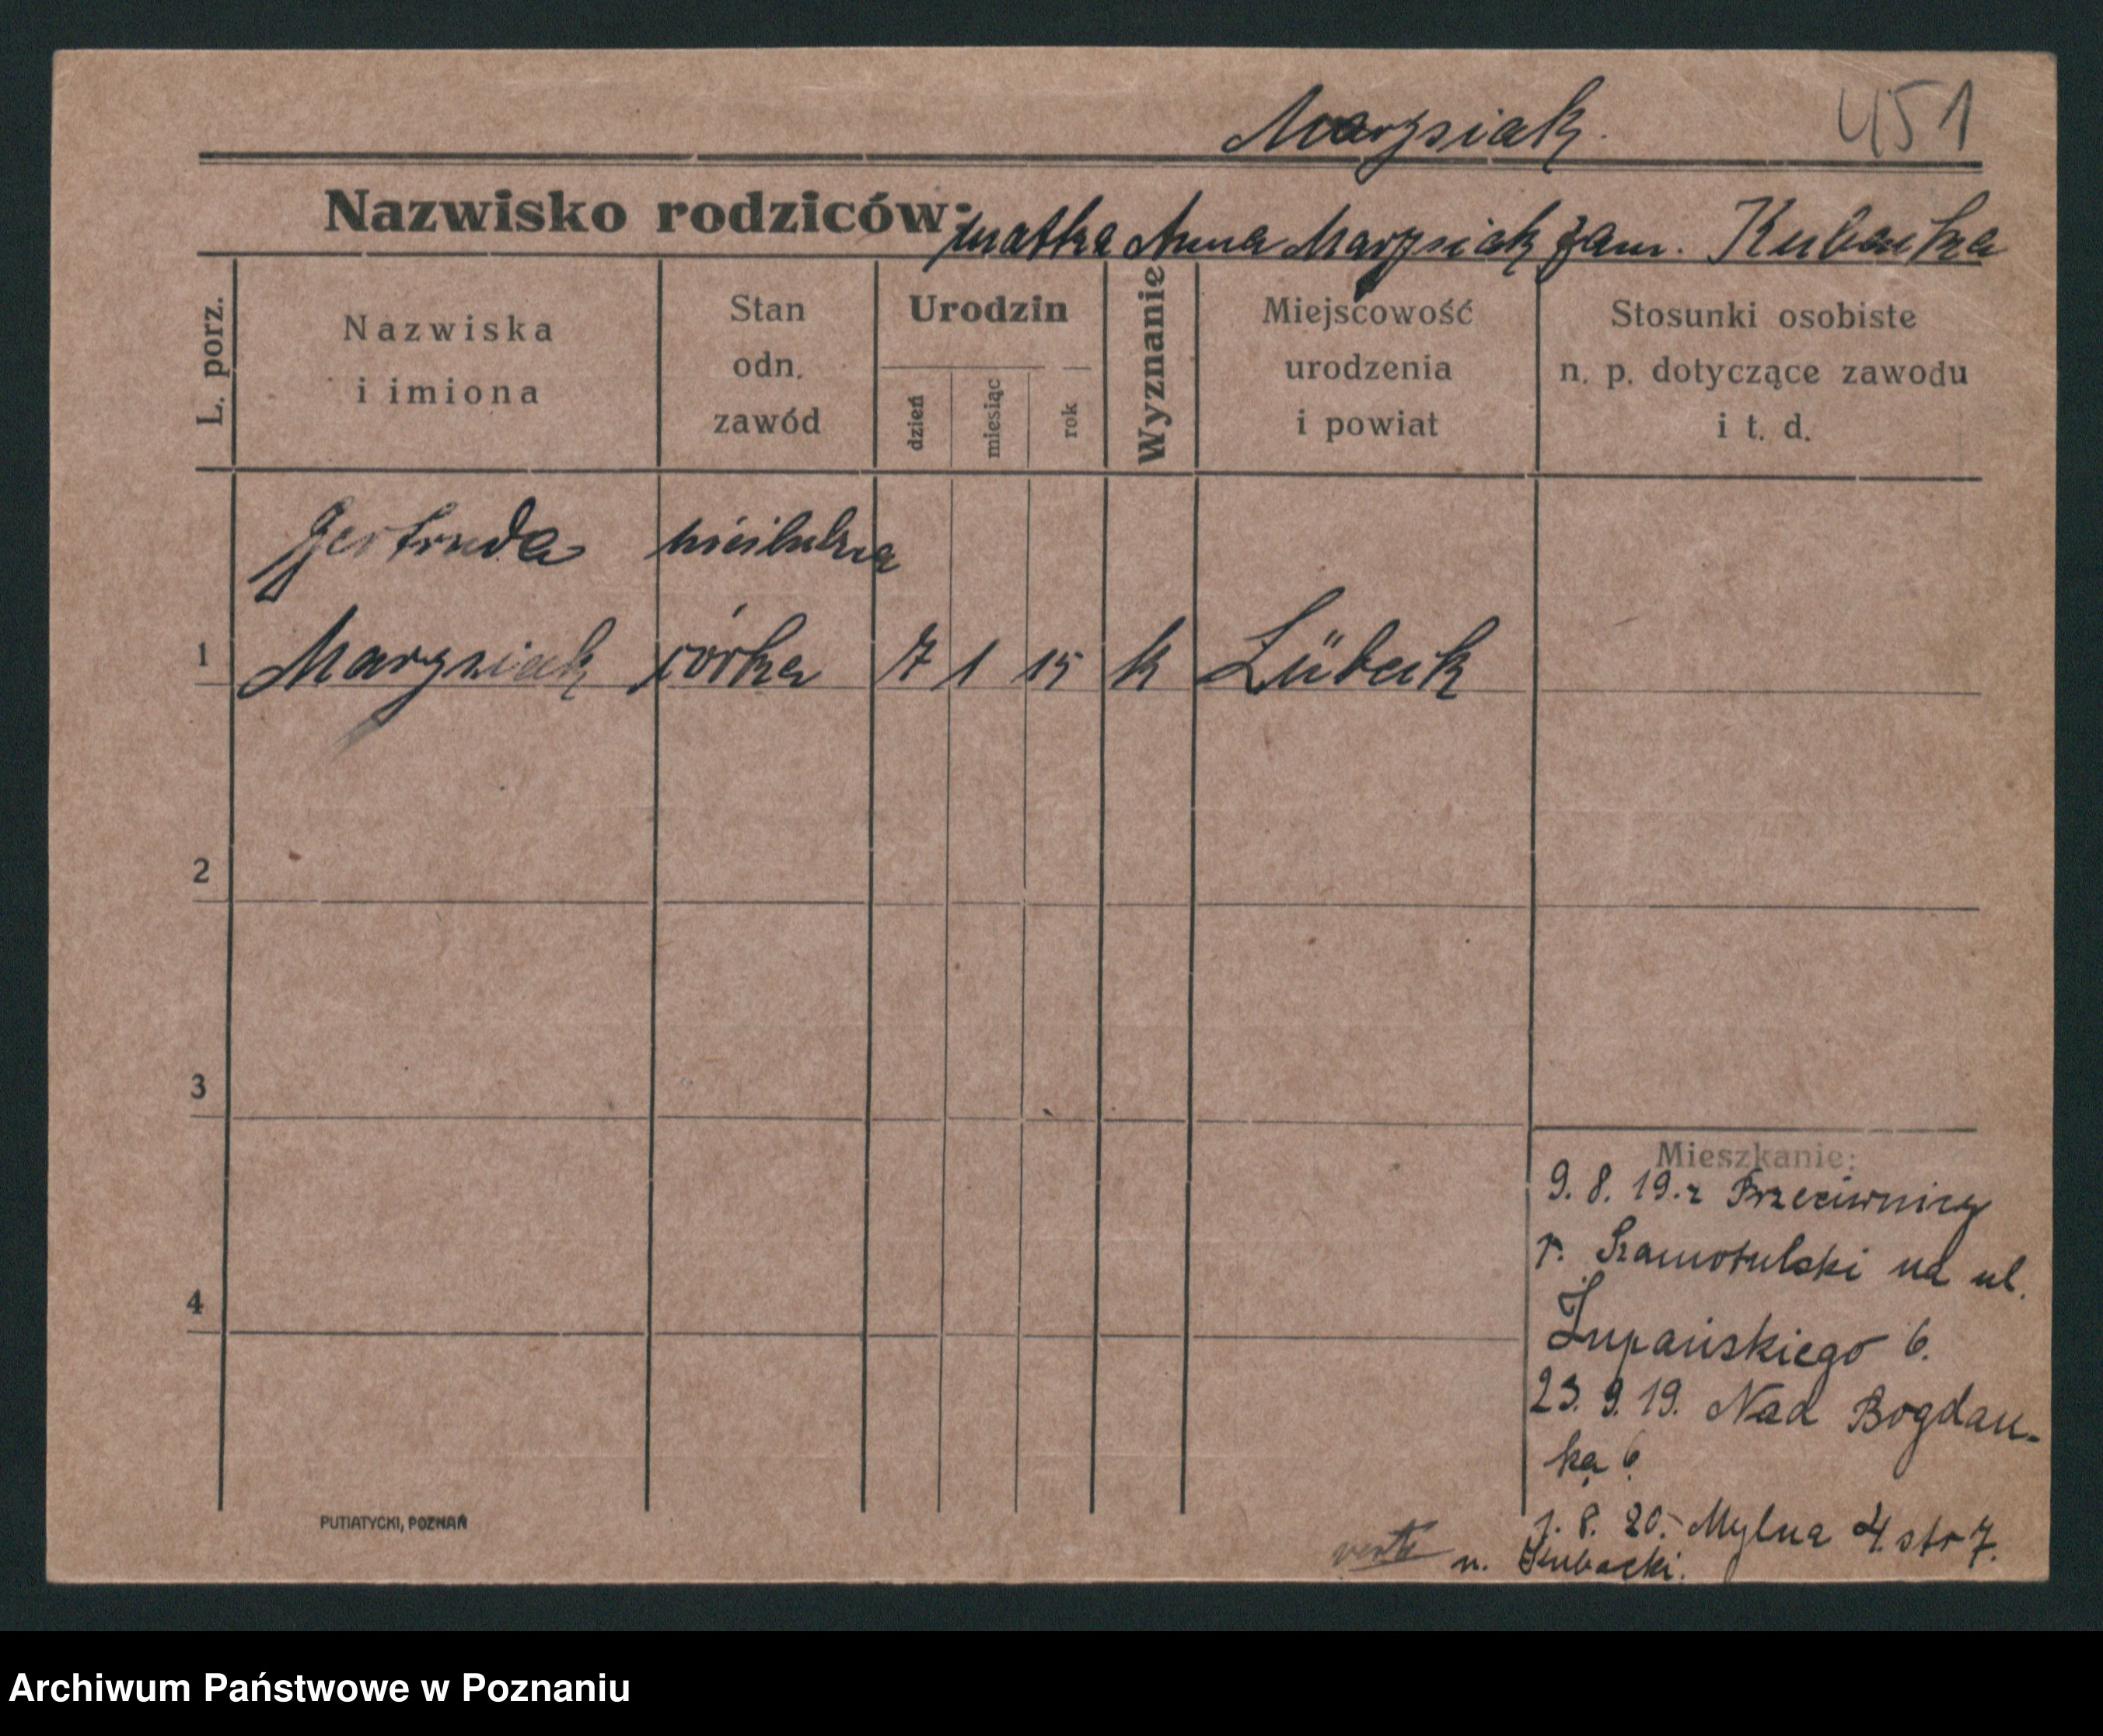 Marzsiak.
451
Nazwisko rodziców: matka Anna Marzsiak zam. Kubacka
L. porz.
Nazwiska i imiona
Stan odn. zawód
Urodzin
dzień
miesiąc
rok
Wyznanie
Miejscowość urodzenia i powiat
Stosunki osobiste n. p. dotyczące zawodu i t. d.
Gertruda nieślubna
1 Marzsiak córka 7 1 15 k Lübeck
2
3
4
Mieszkanie:
9. 8. 19. z Brzeciwnicy
p. Szamotulski na ul.
Żupańskiego 6.
23. 9. 19. Nad Bogdan-
ką 6
1. 8. 20. Mylna 4 str 7.
verte n. Kubacki.
PUTIATYCKI, POZNAŃ
Archiwum Państwowe w Poznaniu